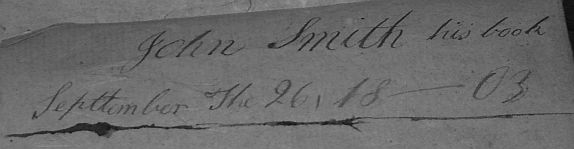 John Smith his book
Septtember The 26, 18 — 03